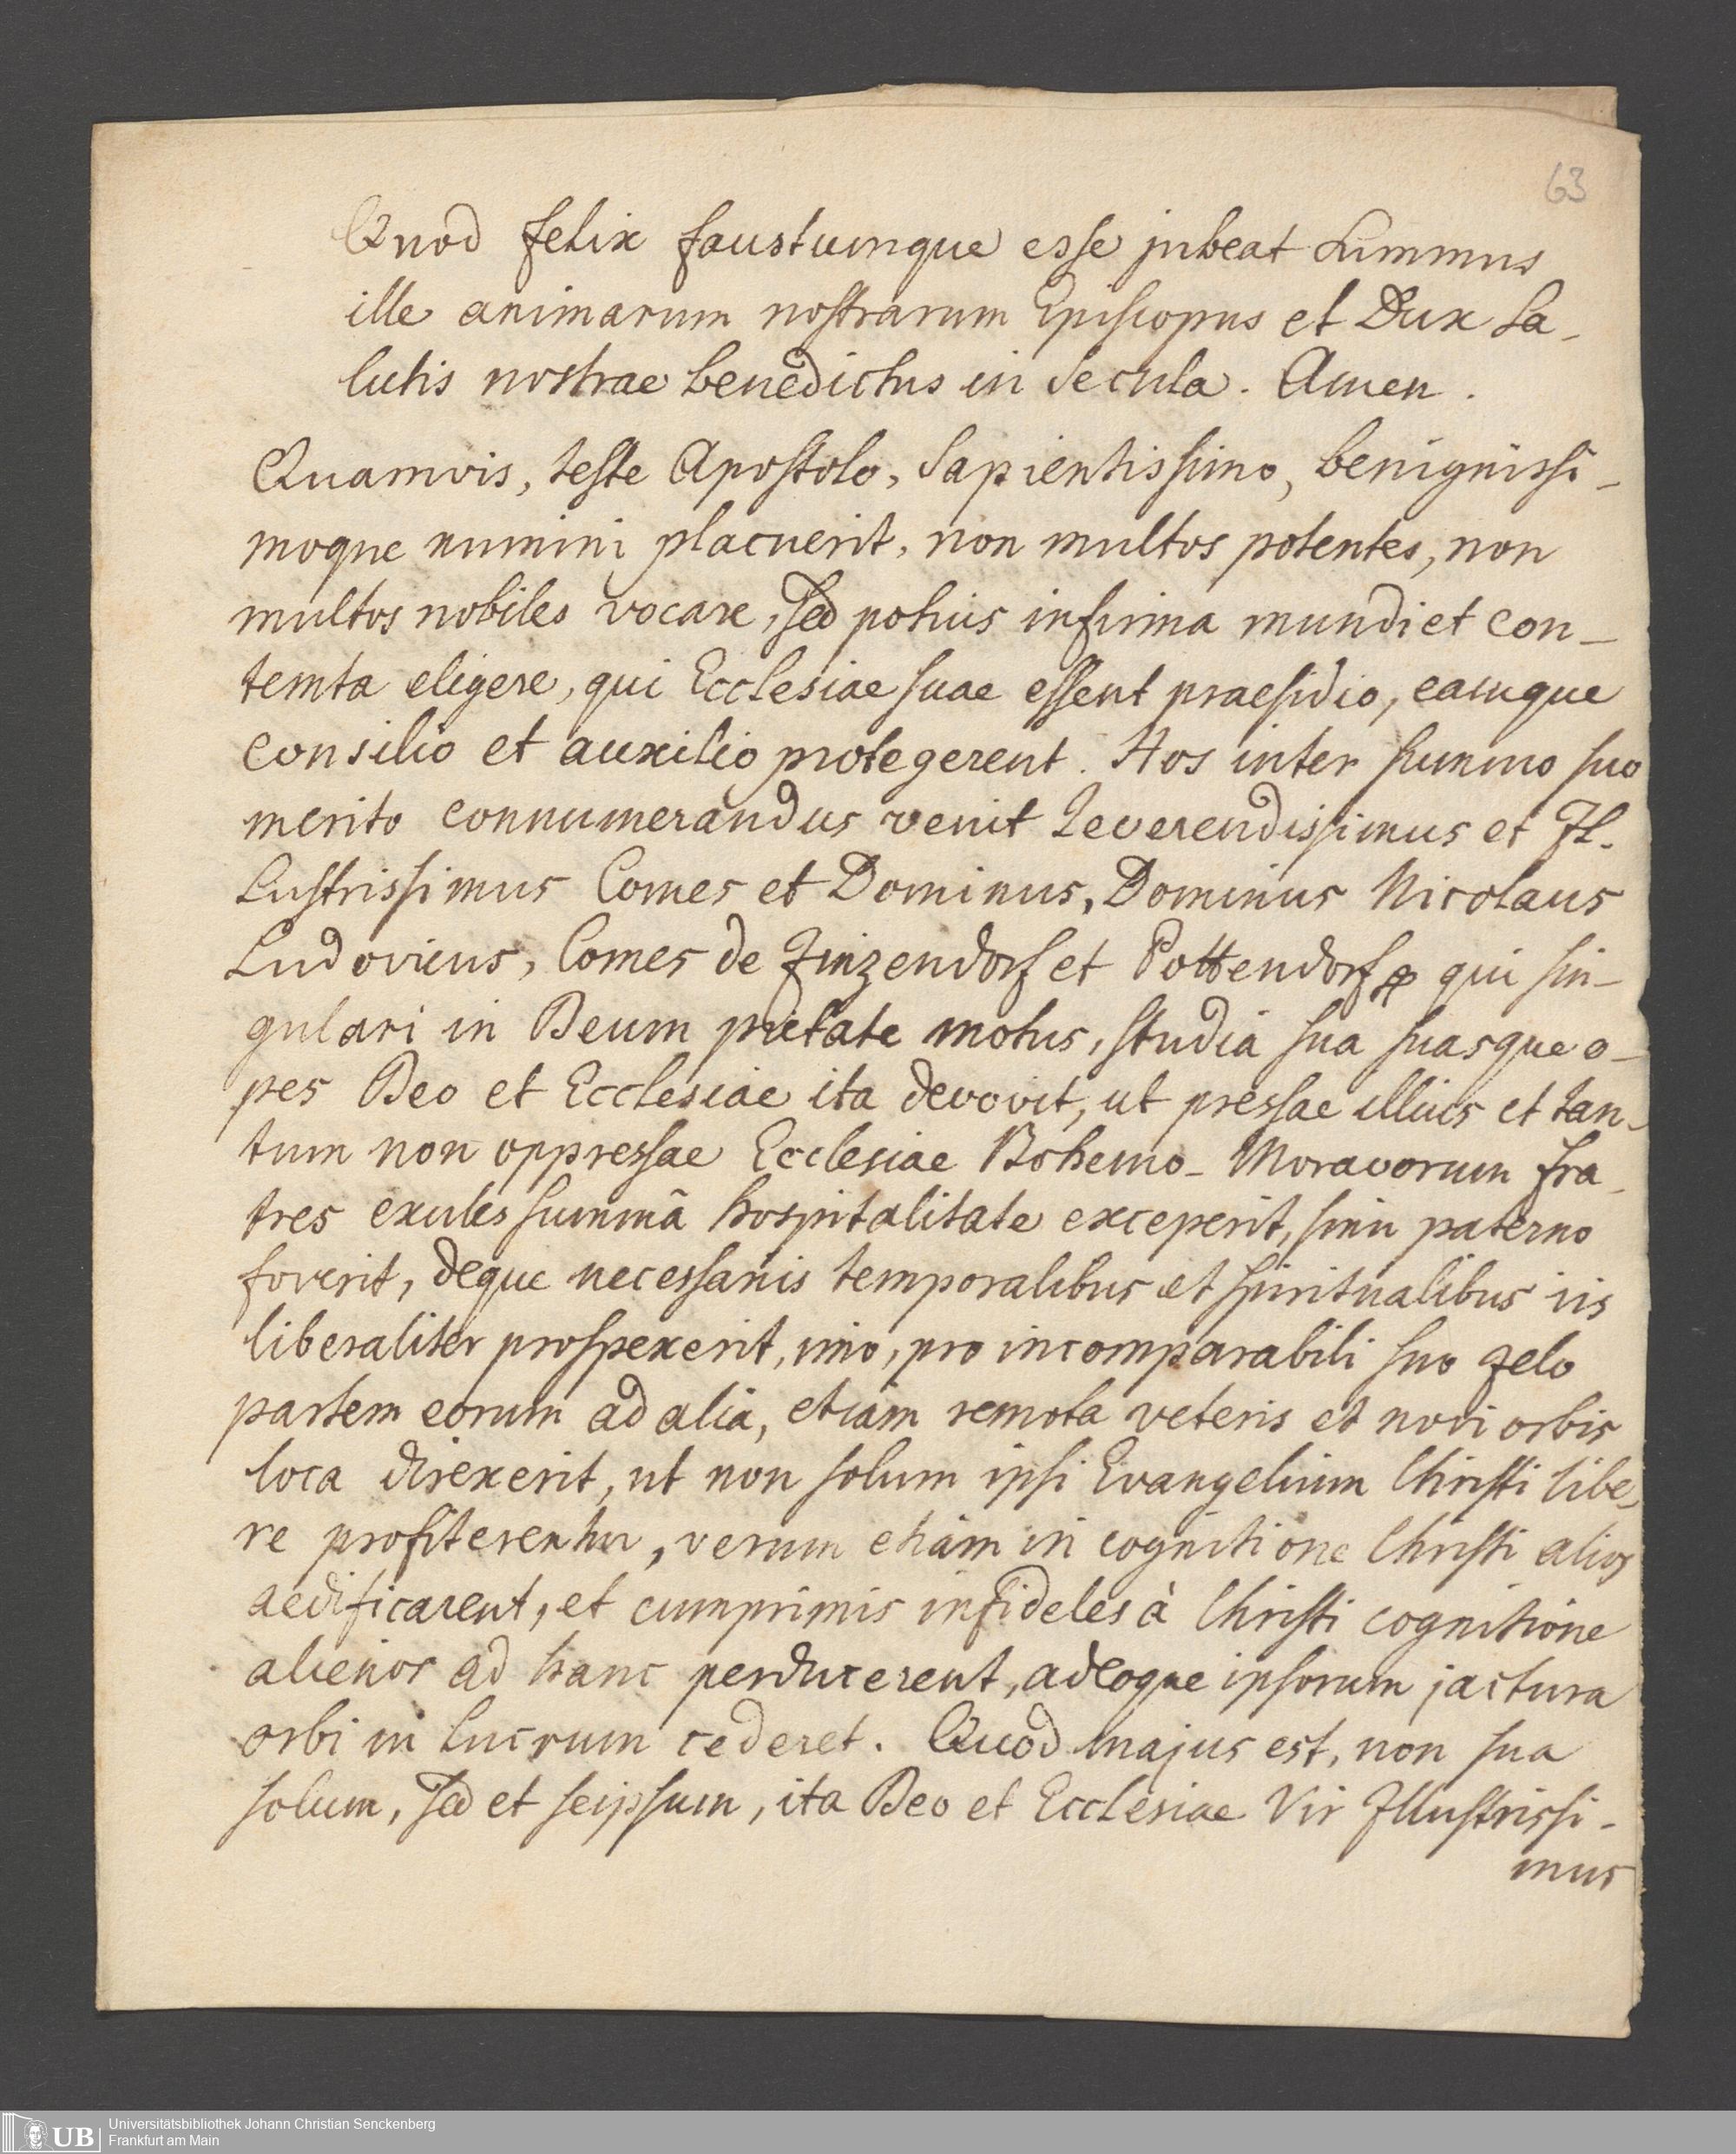 63
Quod felix faustumque esse jubeat Summus
ille animarum nostrarum Episcopus et Dux Sa-
lutis nostrae benedictus in Secula. Amen.
Quamvis, teste Apostolo, Sapientissimo, benignissi-
moque numini placuerit, non multos potentes, non
multos nobiles vocare, sed potius infirma mundi et con-
temta eligere, qui Ecclesiae suae essent praesidio, eamque
consilio et auxilio protegerent. Hos inter summo suo
merito connumerandus venit Reverendissimus et Il-
lustrissimus Comes et Dominus, Dominus Nicolaus
Ludovicus, Comes de Zinzendorf et Pottendorf qui sin-
gulari in Deum pietate motus, studia sua suasque o-
pes Deo et Ecclesiae ita devovit, ut pressae illius et tan-
tum non oppressae Ecclesiae Bohemo-Moravorum fra-
tres exules summâ hospitalitate exceperit, sinu paterno
foverit, deque necessariis temporalibus et spiritualibus iis
liberaliter prospexerit, imo, pro incomparabili suo zelo
partem eorum ad alia, etiam remota veteris et novi orbis
loca direxerit, ut non solum ipsi Evangelium Christi libe-
re profiterentur, verum etiam in cognitione Christi alios
aedificarent, et cumprimis infideles à Christi cognitione
alienos ad hanc perducerent, adeoque ipsorum jactura
orbi in lucrum cederet. Quod majus est, non sua
solum, sed et seipsum, ita Deo et Ecclesiae Vir Illustrissi-
mus
UB
Universitätsbibliothek Johann Christian Senckenberg
Frankfurt am Main